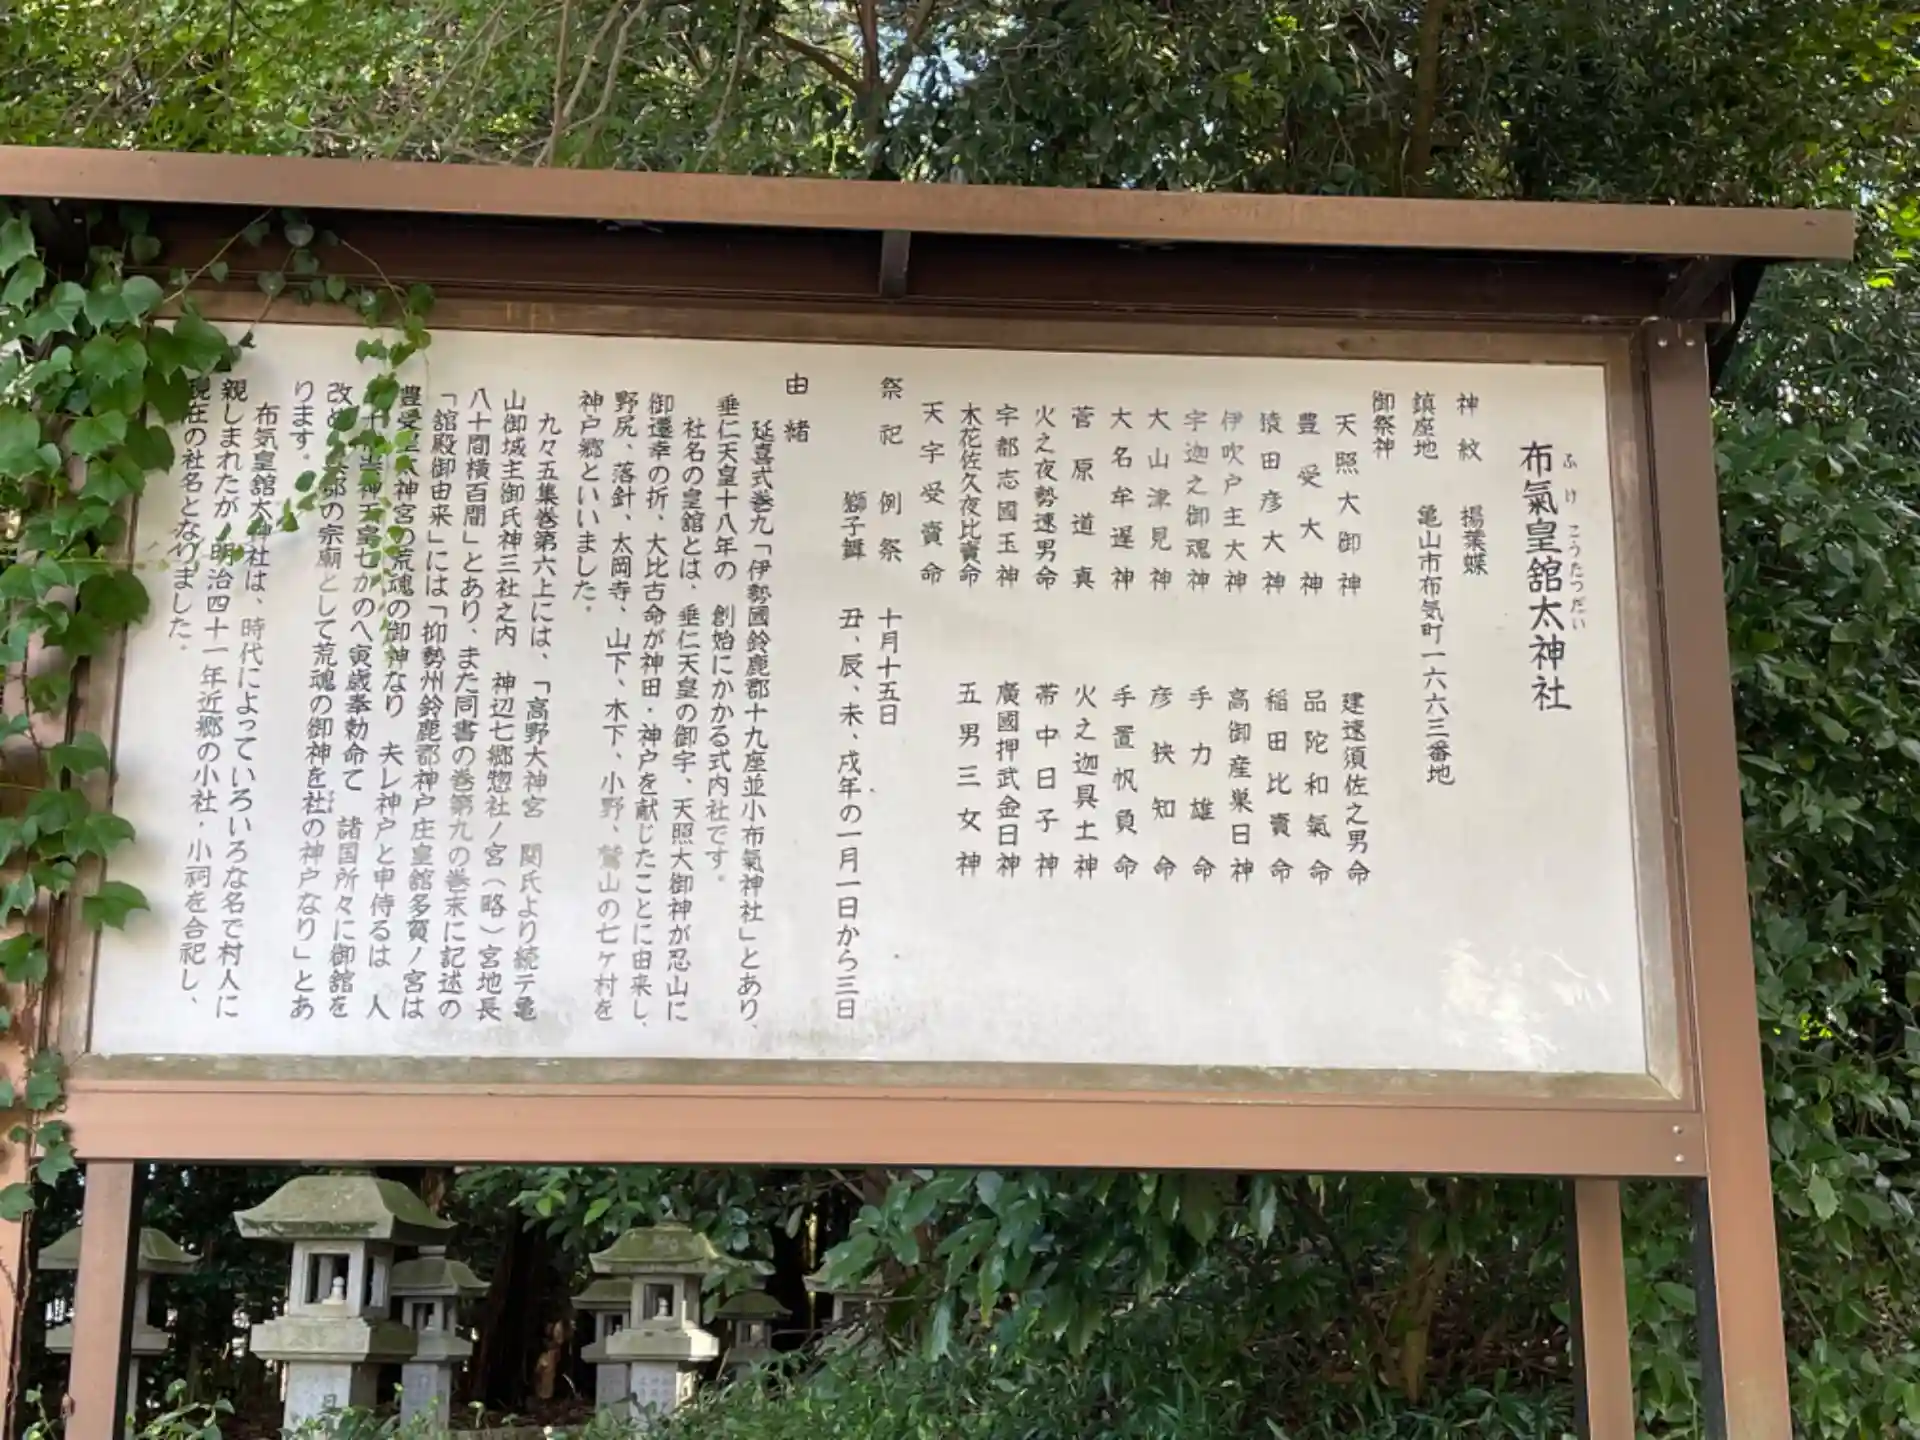 布氣皇舘太神社
ふけこうたつだい
神紋　揚葉蝶
鎮座地　亀山市布気町一六六三番地
御祭神
天照大御神　建速須佐之男命
豊受大神　品陀和氣命
猿田彦大神　稲田比賣命
伊吹戸主大神　高御産巣日神
宇迦之御魂神　手力雄命
大山津見神　彦狭知命
大名牟遅神　手置帆負命
菅原道真　火之迦具土神
火之夜勢速男命　帯中日子神
宇都志國玉神　廣國押武金日神
木花佐久夜比賣命　五男三女神
天宇受賣命
祭祀　例祭　十月十五日
獅子舞　丑、辰、未、戌年の一月一日から三日
由緒
延喜式巻九「伊勢國鈴鹿郡十九座並小布氣神社」とあり、
垂仁天皇十八年の　創始にかかる式内社です。
社名の皇舘とは、垂仁天皇の御宇、天照大御神が忍山に
御遷幸の折、大比古命が神田・神戸を献じたことに由来し、
野尻、落針、太岡寺、山下、木下、小野、鷲山の七ケ村を
神戸郷といいました。
九々五集巻第六上には、「高野大神宮　関氏より続テ亀
山御城主御氏神三社之内　神辺七郷惣社ノ宮（略）宮地長
八十間横百間」とあり、また同書の巻第九の巻末に記述の
「舘殿御由来」には「抑勢州鈴鹿郡神戸庄皇舘多賀ノ宮は
豊受皇太神宮の荒魂の御神なり　夫レ神戸と申侍るは　人
十代崇神天皇七かのへ寅歳奉勅命て　諸国所々に御舘を
改め　郡の宗廟として荒魂の御神を社の神戸なり」とあ
ります。
布気皇舘太神社は、時代によっていろいろな名で村人に
親しまれたが、明治四十一年近郷の小社・小祠を合祀し、
現在の社名となりました。